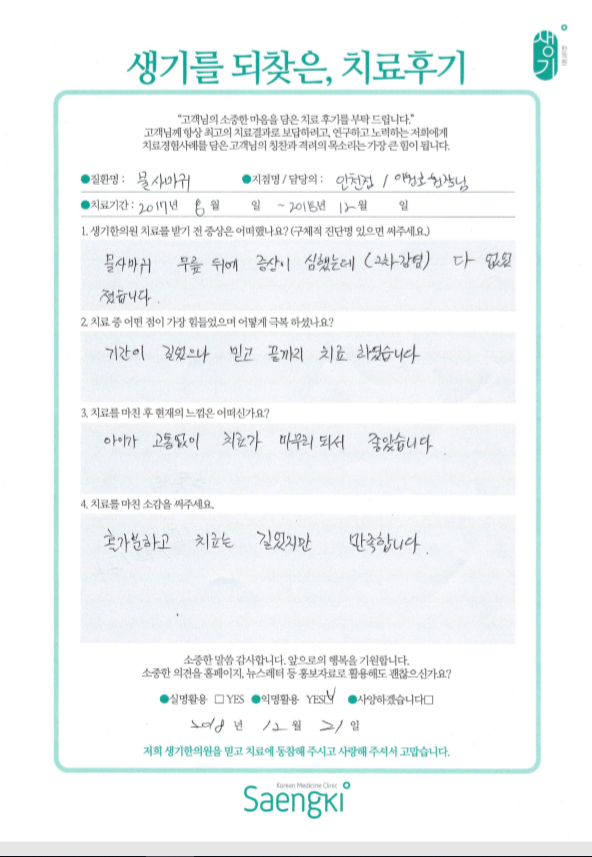 생기를 되찾은, 치료후기
생기
한의원
“고객님의 소중한 마음을 담은 치료 후기를 부탁 드립니다.”
고객님께 항상 최고의 치료결과로 보답하려고, 연구하고 노력하는 저희에게
치료경험사례를 담은 고객님의 칭찬과 격려의 목소리는 가장 큰 힘이 됩니다.
●질환명 : 물사마귀 ●지점명 / 담당의 : 인천점 / 원장님
●치료기간 : 2017년 8월 일 ~ 2018년 12월 일
1. 생기한의원 치료를 받기 전 증상은 어떠했나요? (구체적 진단명 있으면 써주세요.)
물사마귀 무릎 뒤에 증상이 심했는데 (2차감염) 다 없어
졌습니다.
2. 치료 중 어떤 점이 가장 힘들었으며 어떻게 극복 하셨나요?
기간이 길었으나 믿고 끝까지 치료 하였습니다
3. 치료를 마친 후 현재의 느낌은 어떠신가요?
아이가 고통없이 치료가 마무리 되서 좋았습니다.
4. 치료를 마친 소감을 써주세요.
홀가분하고 치료는 길었지만 만족합니다.
소중한 말씀 감사합니다. 앞으로의 행복을 기원합니다.
소중한 의견을 홈페이지, 뉴스레터 등 홍보자료로 활용해도 괜찮으신가요?
●실명활용 □ YES ●익명활용 YES☑ ●사양하겠습니다□
2018년 12월 21일
저희 생기한의원을 믿고 치료에 동참해 주시고 사랑해 주셔서 고맙습니다.
Korean Medicine Clinic
Saengki